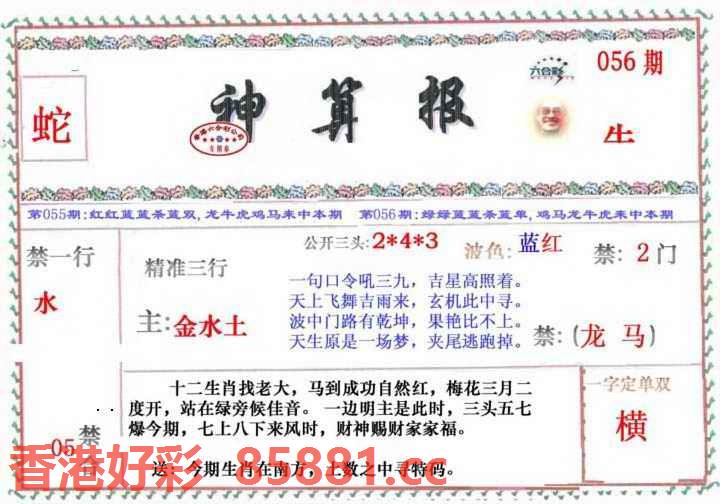 056期
六合彩
蛇
神算报
香港六合彩公司
专用章
牛
第055期:红红蓝蓝条蓝双,龙牛虎鸡马来中本期 第056期:绿绿蓝蓝条蓝单,鸡马龙牛虎来中本期
禁一行
水
精准三行
主:金水土
公开三头:2*4*3
波色:蓝红
禁:2门
一句口令吼三九，吉星高照着。
天上飞舞吉雨来，玄机此中寻。
波中门路有乾坤，果艳比不上。
天生原是一场梦，夹尾逃跑掉。
禁:(龙马)
十二生肖找老大，马到成功自然红，梅花三月二
度开，站在绿旁候佳音。一边明主是此时，三头五七
爆今期，七上八下来风时，财神赐财家家福。
送：今期生肖在南方，上数之中寻特码。
05
禁
合
一字定单双
横
香港好彩-85881.cc